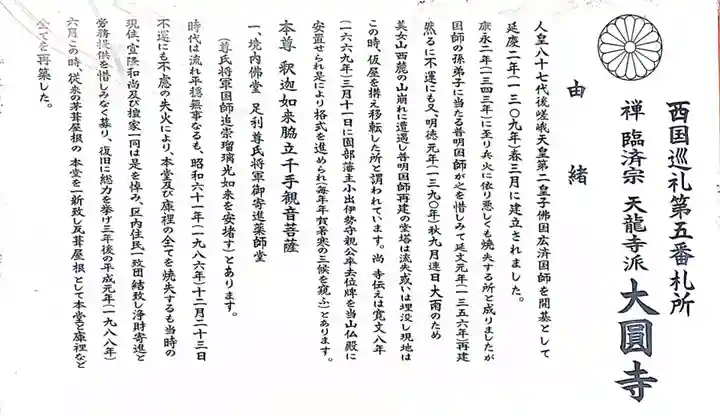 西国巡礼第五番札所
禅 臨済宗 天龍寺派 大圓寺
由緒
人皇八十七代後嵯峨天皇第二皇子佛国広済国師を開基として
延慶二年(一三〇九年)春三月に建立されました。
康永二年(一三四三年)に至り兵火に依り悪しくも焼失する所と成りましたが
国師の孫弟子に当たる普明国師が之を惜しみて延文元年(一三五六年)再建
然るに不運にも又、明徳元年(一三九〇年)秋九月連日大雨のため
美女山西麓の山崩れに遭遇し普明国師再建の堂塔は流失或いは埋没し現地は
この時、仮屋を構え移転した所と謂われています。尚 寺伝えは寛文八年
(一六六九年)三月十一日に園部藩主小出伊勢守親公卆去位牌を当山仏殿に
安置せられ是により格式を進められ(毎年年賀暑寒の三候を窺ふ)とあります。
本尊 釈迦如来脇立千手観音菩薩
一、境内佛堂 足利尊氏将軍御寄進薬師堂
(尊氏将軍国師追崇瑠璃光如来を安堵す)とあります。
時代は流れ平穏無事なるも、昭和六十一年(一九八六年)十二月二十三日
不運にも不慮の失火により、本堂及び庫裡の全てを焼失するも当時の
現住、宜隆和尚及び檀家一同は是を悼み、区内住民一致団結致し浄財寄進と
労務提供を惜しみなく募り、復旧に総力を挙げ三年後の平成元年(一九八八年)
六月この時、従来の茅葺屋根の 本堂を一新致し瓦葺屋根として本堂と庫裡など
全てを再築した。